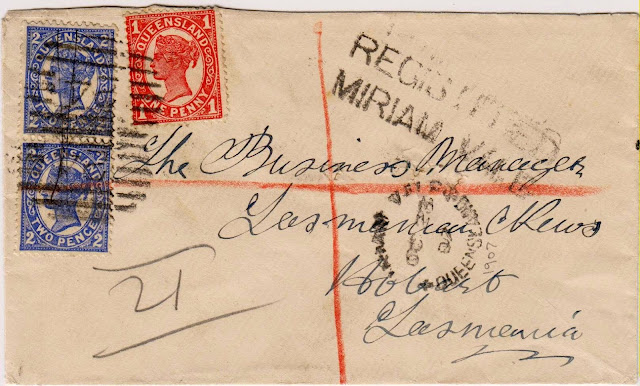 QUEENSLAND
2 TWO PENCE 2
QUEENSLAND
2 TWO PENCE 2
QUEENSLAND
1 ONE PENNY 1
REGISTERED
MIRIAM VALE
The Business Manager
Tasmanian News
Hobart
Tasmania
21
QUEENSLAND
1907